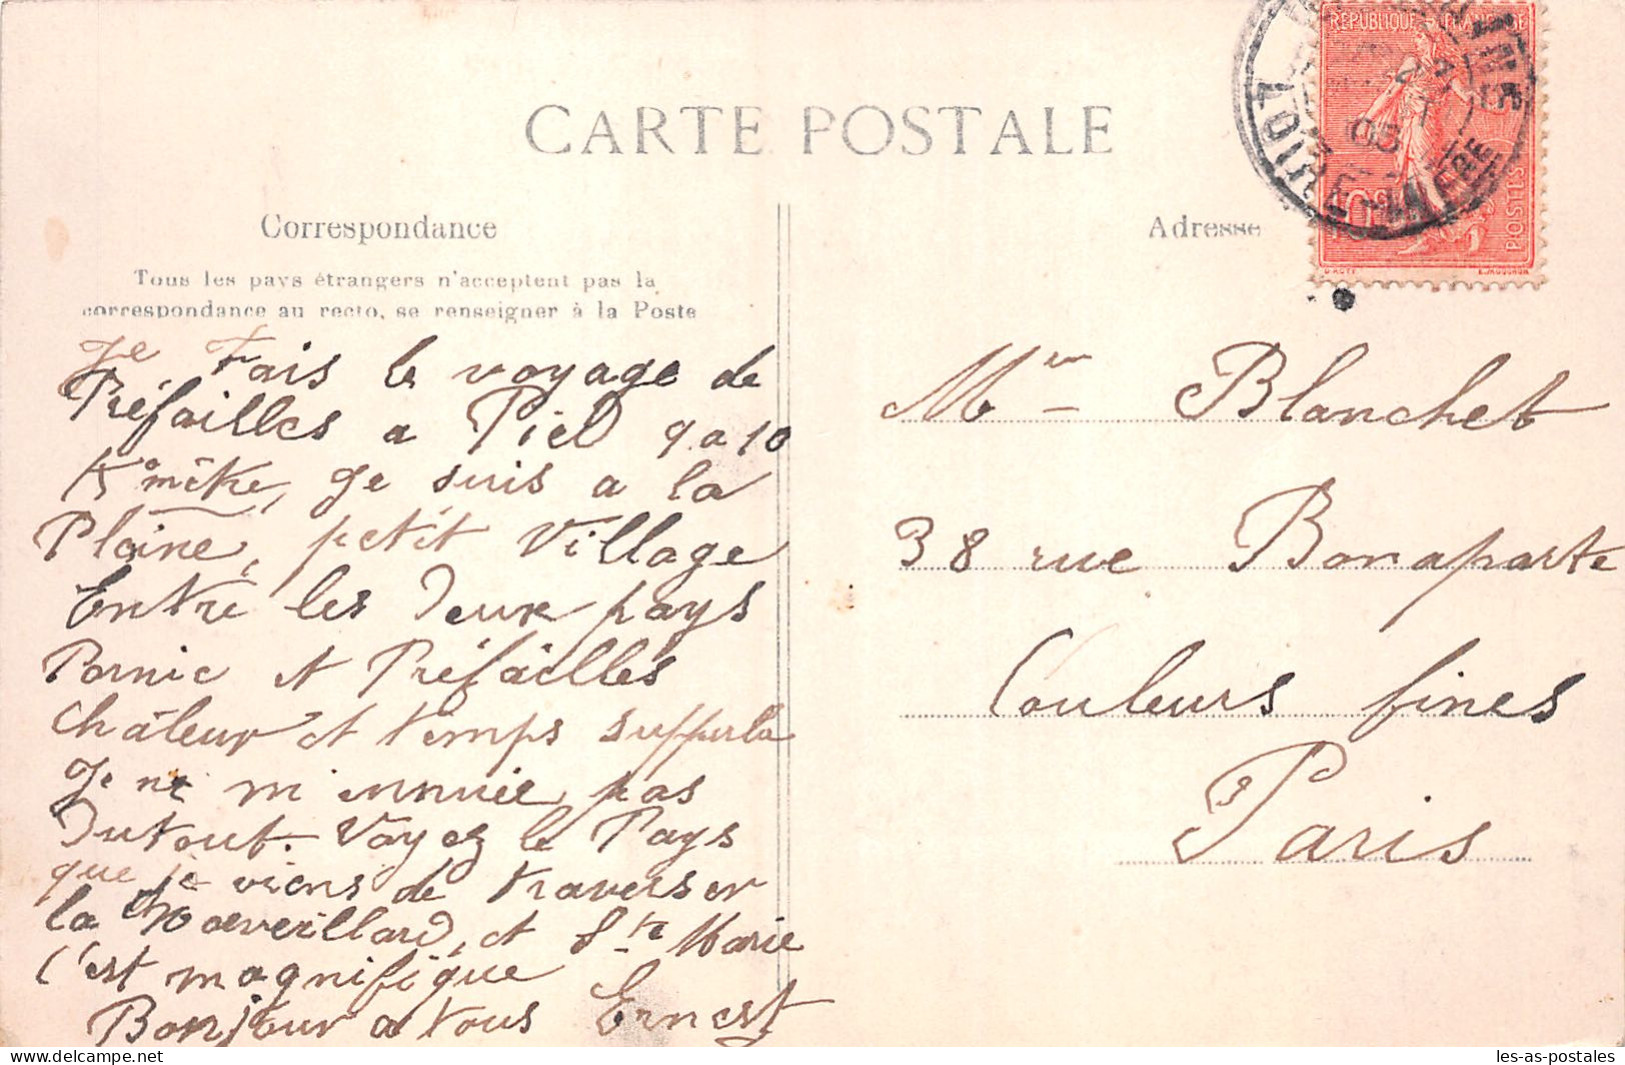 CARTE POSTALE
Correspondance
Tous les pays étrangers n'acceptent pas la
correspondance au recto, se renseigner à la Poste
Je Fais le voyage de
Préfailles a Pied 9 a 10
Kmètre, Je suis a la
Plaine, petit Village
Entre les Deux pays
Pornic et Préfailles
Châleur et temps supperbe
Je ne m'ennuie pas
Dutout. Voyez le Pays
que je viens de traverser
la Noëveillard, et Ste Marie
C'est magnifique
Bonjour a tous Ernest
Adresse
RÉPUBLIQUE FRANÇAISE
POSTES
LOIRE-INFRE
05
Mr Blanchet
38 rue Bonaparte
Couleurs fines
Paris
les-as-postales
delcampe.net